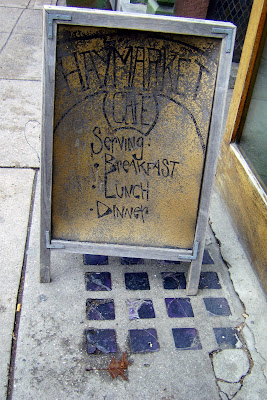 HAYMARKET
(CAFE)
SERVING:
• BREAKFAST
• LUNCH
• DINNER